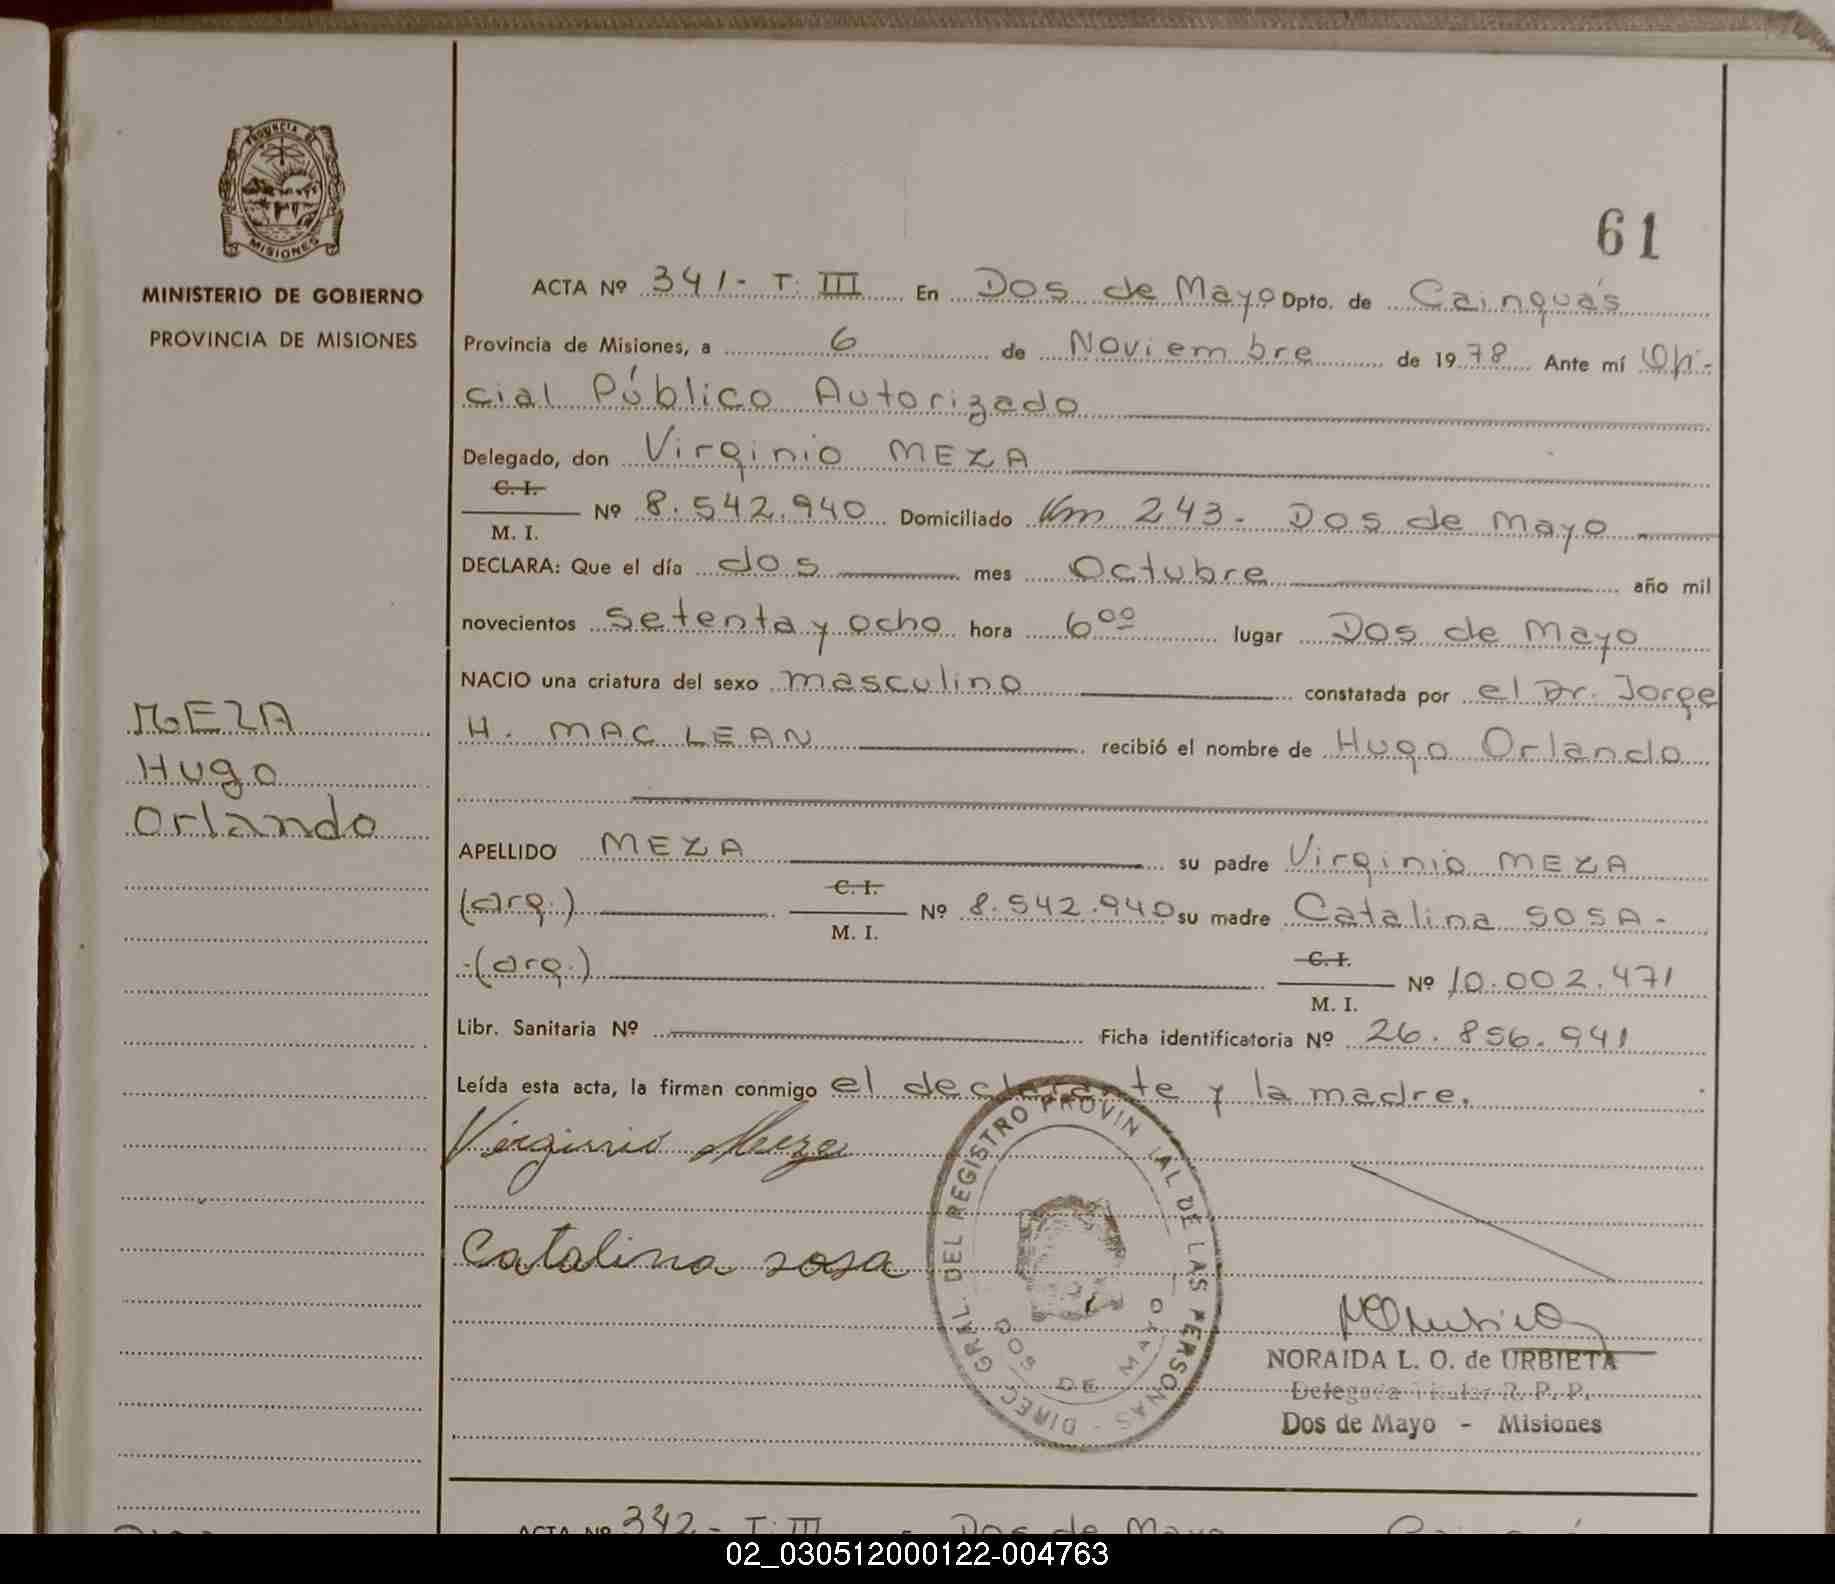 PROVINCIA DE
MISIONES
MINISTERIO DE GOBIERNO
PROVINCIA DE MISIONES
MEZA
Hugo
Orlando
61
ACTA Nº 341- T: III En Dos de Mayo Dpto. de Cainguás
Provincia de Misiones, a 6 de Noviembre de 1978 Ante mí Ofi-
cial Público Autorizado
Delegado, don Virginio MEZA
C. I.
M. I. Nº 8.542.940 Domiciliado Km 243- Dos de Mayo
DECLARA: Que el día dos mes Octubre año mil
novecientos setenta y ocho hora 6oo lugar Dos de Mayo
NACIO una criatura del sexo masculino constatada por el Dr. Jorge
H. MAC LEAN recibió el nombre de Hugo Orlando
APELLIDO MEZA su padre Virginio MEZA
(arg.) C. I.
M. I. Nº 8.542.940 su madre Catalina SOSA-
-(arg.) C. I.
M. I. Nº 10.002.471
Libr. Sanitaria Nº Ficha identificatoria Nº 26.856.941
Leída esta acta, la firman conmigo el declarante y la madre.
Virginio Meza
Catalina sosa
DIREC GRAL. DEL REGISTRO PROVIN IAL DE LAS PERSONAS -
DOS DE MAYO
NORAIDA L. O. de URBIETA
Delegada Titular R. P. P.
Dos de Mayo - Misiones
ACTA Nº 342- T: III Dos de Mayo
02_030512000122-004763